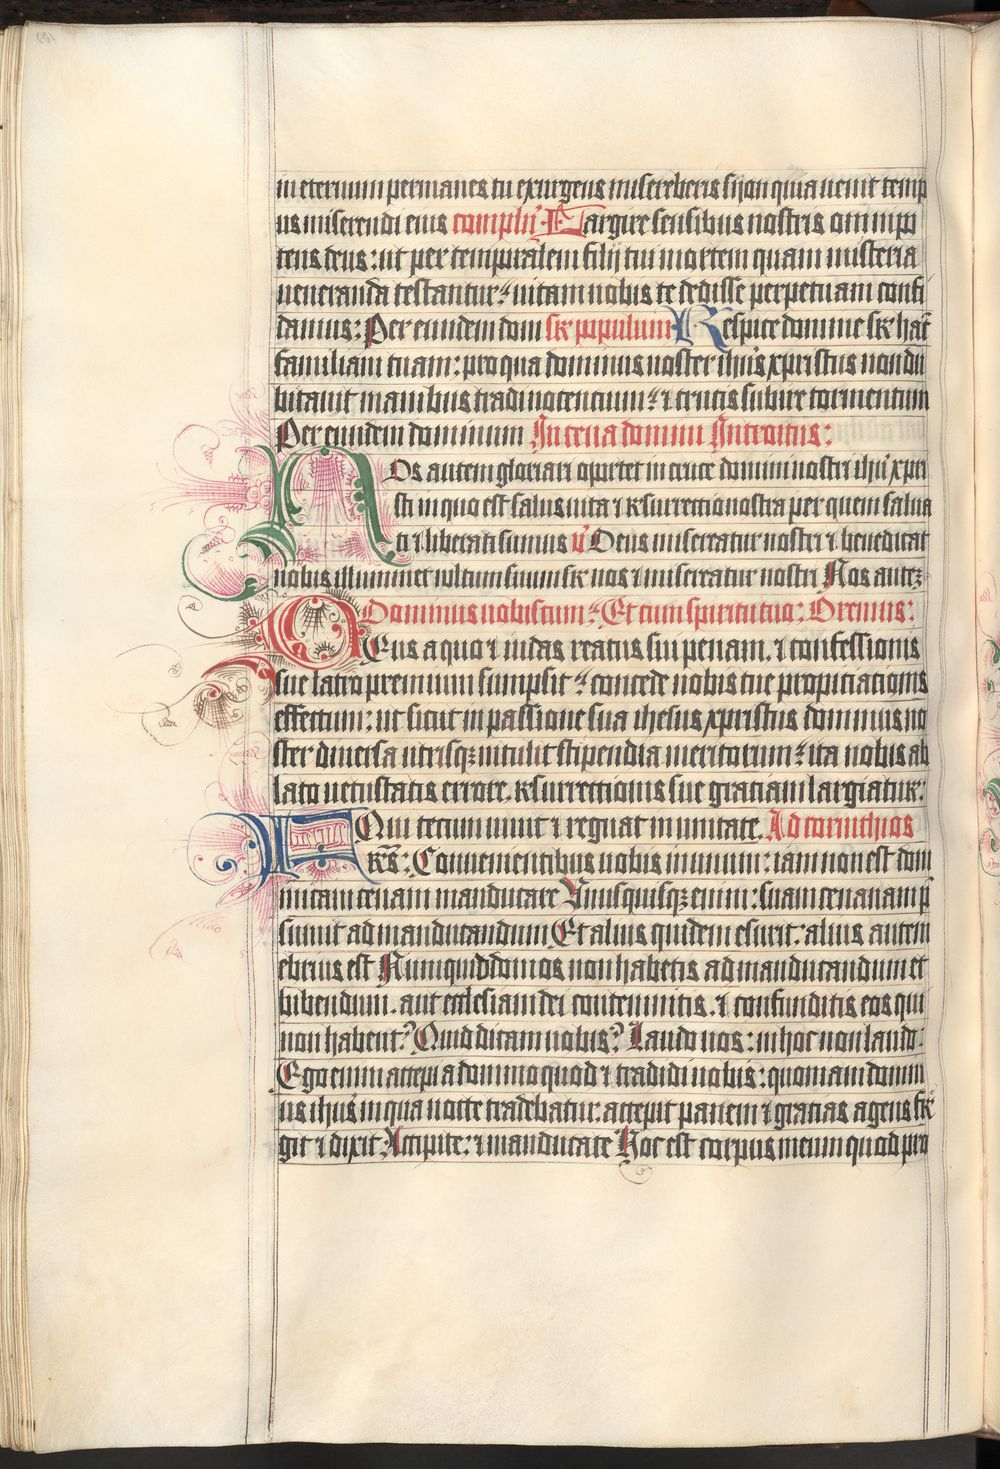 in eternum permanes tu exurgens misereberis sijon quia uenit temp
us miserendi eius complη̄ Largire sensibus nostris omnipo
tens deus: ut per temporalem filij tui mortem quam misteria
ueneranda testantur: uitam nobis te dedisse perpetuam confi
damus: Per eundem dom sr̄ populum Respice domine sr̄ hāc
familiam tuam: pro qua dominus noster ihūs xpristus non du
bitauit manibus tradi nocentium: ⁊ crucis subire tormentum
Per eundem dominum In cena domini Introitus:
Nos autem gloriari oportet in cruce domini nostri ihū xpri
sti in quo est salus uita ⁊ resurrectio nostra per quem salua
ti ⁊ liberati sumus v̄ Deus misereatur nostri ⁊ benedicat
nobis illuminet uultum suum sr̄ nos ⁊ misereatur nostri Nos autē
Dominus uobiscum: Et cum spiritu tuo: Oremus:
Deus a quo ⁊ iudas reatus sui penam. ⁊ confessionis
sue latro premium sumpsit: concede nobis tue propiciationis
effectum: ut sicut in passione sua ihesus xpristus dominus no
ster diuersa utrisqꝫ intulit stipendia meritorum: ita nobis ab
lato uetustatis errore. resurrectionis sue graciam largiatur:
Qui tecum uiuit ⁊ regnat in unitate. Ad corinthios
Frēs: Conuenientibus uobis in unum: iam non est dom
inicam cenam manducare Unusquisqꝫ enim: suam cenanam p̄
sumit ad manducandum Et alius quidem esurit: alius autem
ebrius est Numquid domos non habetis ad manducandum et
bibendum. aut ecclesiam dei contemnitis. ⁊ confunditis eos qui
non habent? Quid dicam uobis? Laudo uos: in hoc non laudo:
Ego enim accepi a domino quod ⁊ tradidi uobis: quoniam domin
us ihūs in qua nocte tradebatur: accepit panem ⁊ gracias agens fre
git ⁊ dixit: Accipite: ⁊ manducate Hoc est corpus meum quod pro